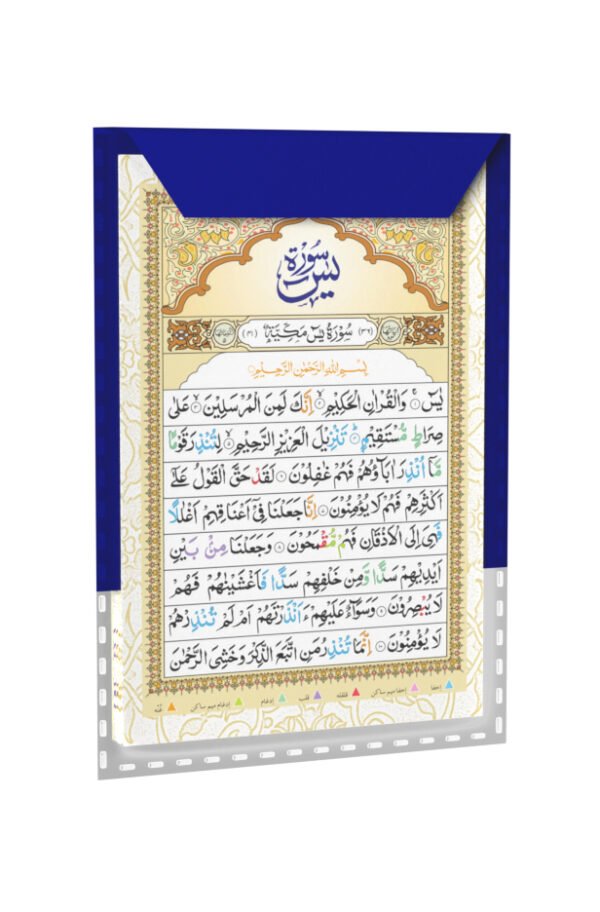 سُوْرَةُ يٰسٓ
(٣٦) سُوْرَةُ يٰسٓ مَكِّيَّةٌ (٤١)
بِسْمِ اللهِ الرَّحْمٰنِ الرَّحِيْمِ
يٰسٓ ۚ وَالْقُرْاٰنِ الْحَكِيْمِ ۙ اِنَّكَ لَمِنَ الْمُرْسَلِيْنَ ۙ عَلٰى
صِرَاطٍ مُّسْتَقِيْمٍ ؕ تَنْزِيْلَ الْعَزِيْزِ الرَّحِيْمِ ۙ لِتُنْذِرَ قَوْمًا
مَّآ اُنْذِرَ اٰبَآؤُهُمْ فَهُمْ غٰفِلُوْنَ ○ لَقَدْ حَقَّ الْقَوْلُ عَلٰٓى
اَكْثَرِهِمْ فَهُمْ لَا يُؤْمِنُوْنَ ○ اِنَّا جَعَلْنَا فِيْٓ اَعْنَاقِهِمْ اَغْلٰلًا
فَهِيَ اِلَى الْاَذْقَانِ فَهُمْ مُّقْمَحُوْنَ ○ وَجَعَلْنَا مِنْۢ بَيْنِ
اَيْدِيْهِمْ سَدًّا وَّمِنْ خَلْفِهِمْ سَدًّا فَاَغْشَيْنٰهُمْ فَهُمْ
لَا يُبْصِرُوْنَ ○ وَسَوَآءٌ عَلَيْهِمْ ءَاَنْذَرْتَهُمْ اَمْ لَمْ تُنْذِرْهُمْ
لَا يُؤْمِنُوْنَ ○ اِنَّمَا تُنْذِرُ مَنِ اتَّبَعَ الذِّكْرَ وَخَشِيَ الرَّحْمٰنَ
اخفا اخفا میم ساکن قلقلہ قلب ادغام ادغام میم ساکن غنہ